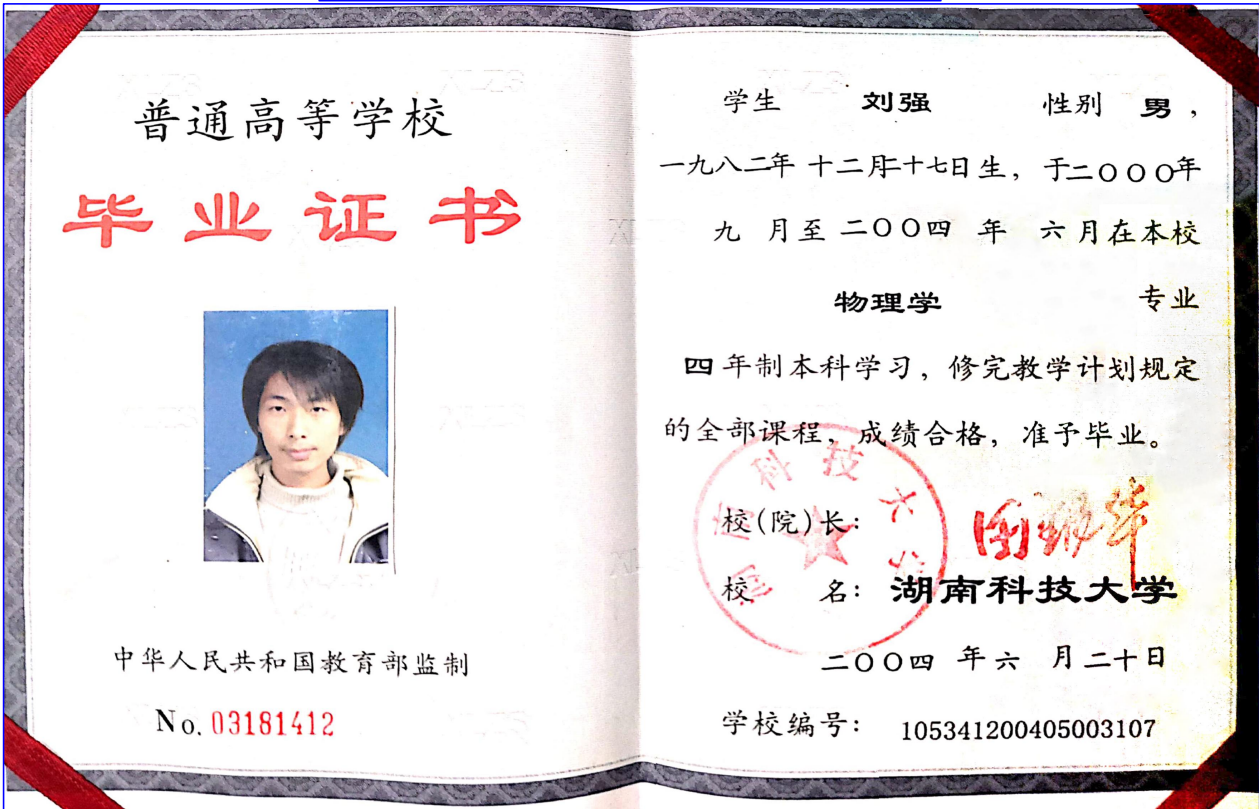 普通高等学校
毕业证书
中华人民共和国教育部监制
No. 03181412
学生 刘强 性别 男，
一九八二年 十二月二十七日生，于二〇〇〇年
九 月至 二〇〇四 年 六月在本校
物理学 专业
四年制本科学习，修完教学计划规定
的全部课程，成绩合格，准予毕业。
校(院)长：
校 名：湖南科技大学
二〇〇四 年六 月二十日
学校编号： 105341200405003107
湖南科技大学